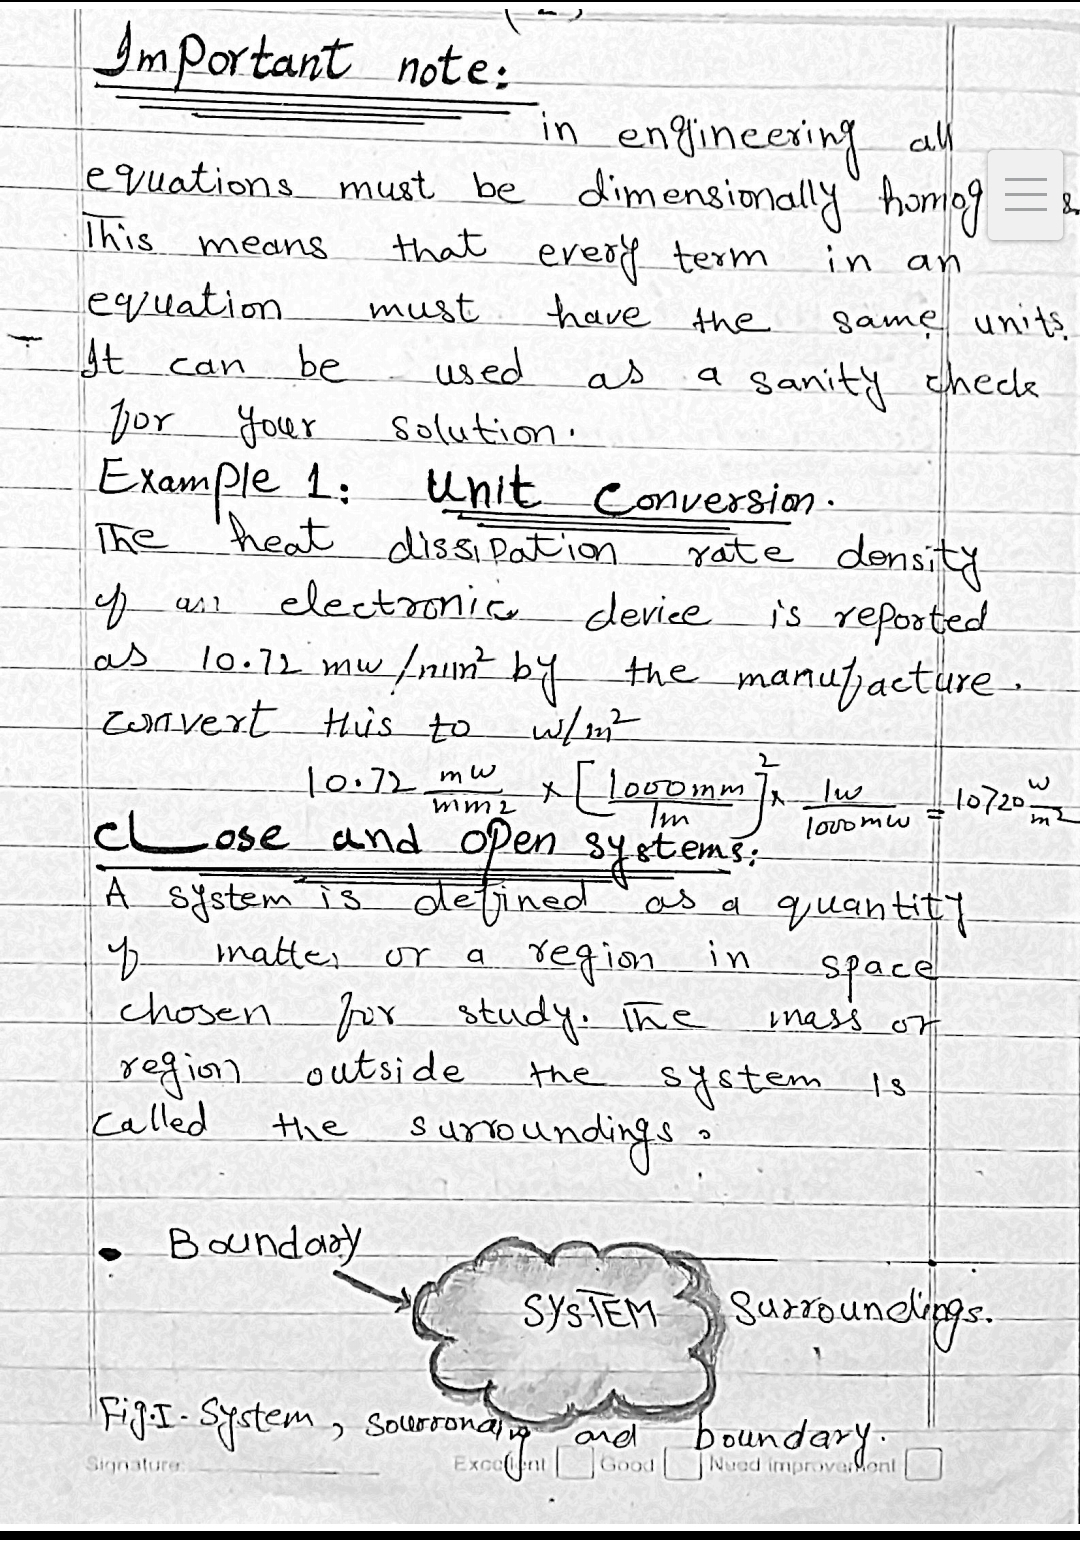 Important note:
in engineering all
equations must be dimensionally homog
This means that every term in an
equation must have the same units.
It can be used as a sanity check
for your solution.
Example 1: Unit Conversion.
The heat dissipation rate density
of an electronic device is reported
as 10.72 mw/mm² by the manufacture.
convert this to w/m²
10.72 mw/mm2 × [1000mm/1m]² × 1w/1000mw = 10720 w/m²
CLose and open systems:
A system is defined as a quantity
of matter or a region in space
chosen for study. The mass or
region outside the system is
called the surroundings.
• Boundary
SYSTEM Surroundings.
Fig.I- System, and boundary.
Signature: Excellent Good Need improvement